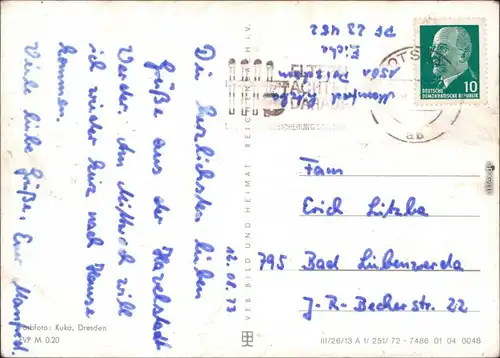 Die herzlichsten lieben
Grüße aus der Havelstadt
Werder. Am Mittwoch will
ich wieder hier nach Hause
kommen.
Viele liebe Grüße, Euer Manfred.
12.08.73
Manfred
1501 Potsdam
Eiche
PF 23 482
ELTERN
ACHTET
DARAUF
DEUTSCHE
DEMOKRATISCHE REPUBLIK
10
ab
Fam
Erich Litzba
795 Bad Liebenwerda
J.-R.-Becherstr. 22
VEB BILD UND HEIMAT REICHENBACH I. V.
Farbfoto: Kuka, Dresden
EVP M 0.20
III/26/13 A 1/251/72 - 7486 01 04 0048